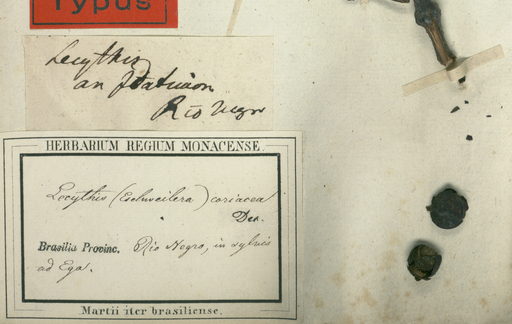 Typus
Lecythis
an
Rio Negro
HERBARIUM REGIUM MONACENSE.
Lecythis (Eschweilera) coriacea
Brasilia Provinc. Rio Negro, in sylvis
ad Ega.
Martii iter brasiliense.